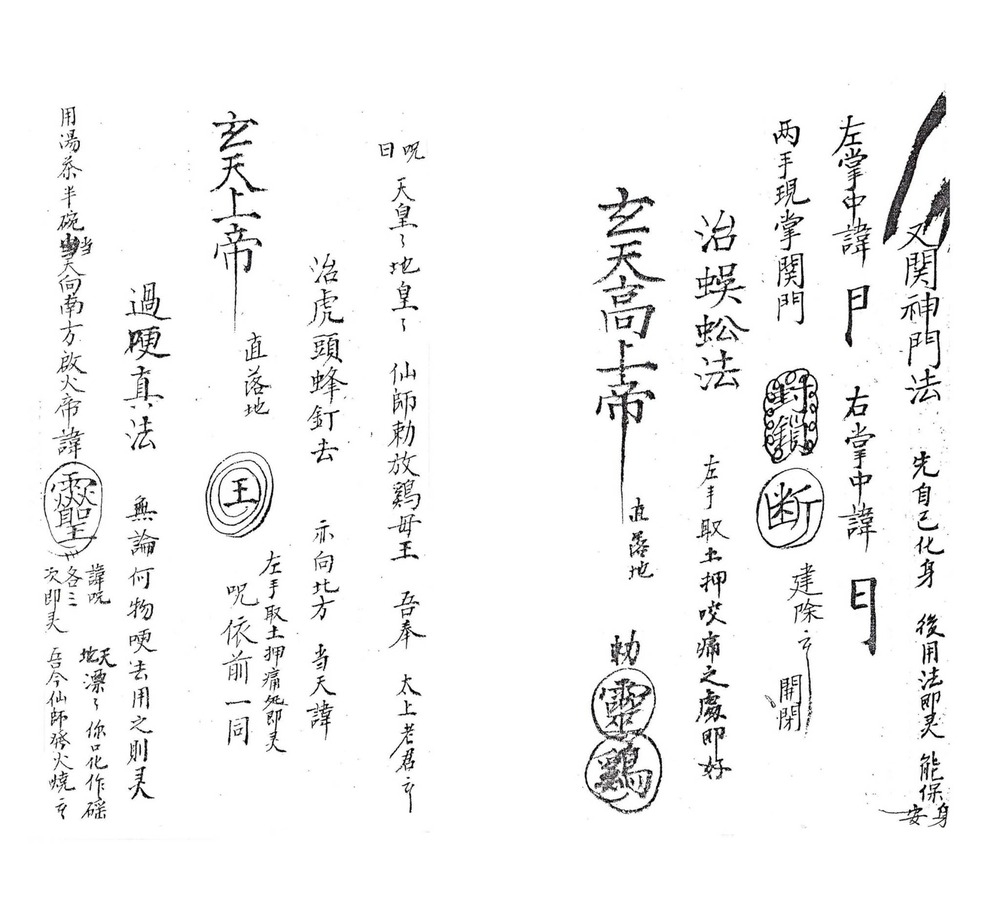 又関神門法 先自己化身 後用法即灵 能保身安
左掌中諱 右掌中諱
两手現掌関門 封鎖 断 建除 開閉
治蜈蚣法 左手取土押咬痛之處即好
玄天高上帝 直落地 勅 靈鷄
呪曰 天皇〻地皇〻 仙師勅放鷄母王 吾奉 太上老君
治虎頭蜂釘去 亦向北方 当天諱
玄天上帝 直落地 王 左手取土押痛處即灵 呪依前一同
過哽真法 無論何物哽去用之則灵
用湯茶半碗当天向南方啟火帝諱 諱呪各三次即灵 天地漂〻你口化作磘 吾今仙師發火燒